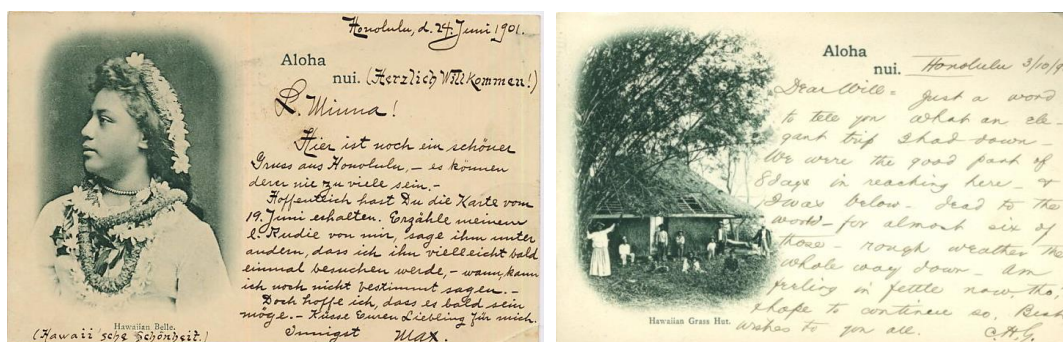 Honolulu, d. 24. Juni 1901.
Aloha
nui. (Herzlich Willkommen!)
L. Minna!
Hier ist noch ein schöner
Gruss aus Honolulu, – es können
derer nie zu viele sein. –
Hoffentlich hast Du die Karte vom
19. Juni erhalten. Erzähle meinem
l. Rudie von mir, sage ihm unter
andern, dass ich ihn vielleicht bald
einmal besuchen werde, – wann, kann
ich noch nicht bestimmt sagen. –
Doch hoffe ich, dass es bald sein
möge. – Küsse Euren Liebling für mich.
Innigst Max.
Hawaiian Belle.
(Hawaii'sche Schönheit.)
Aloha
nui. Honolulu 3/10/9
Dear Will = Just a word
to tell you what an ele-
gant trip I had down –
We were the good part of
8 days in reaching here – &
I was below – dead to the
world – for almost six of
those – rough weather the
whole way down – am
feeling in fettle now, tho'
& hope to continue so. Best
wishes to you all. C.H.G.
Hawaiian Grass Hut.